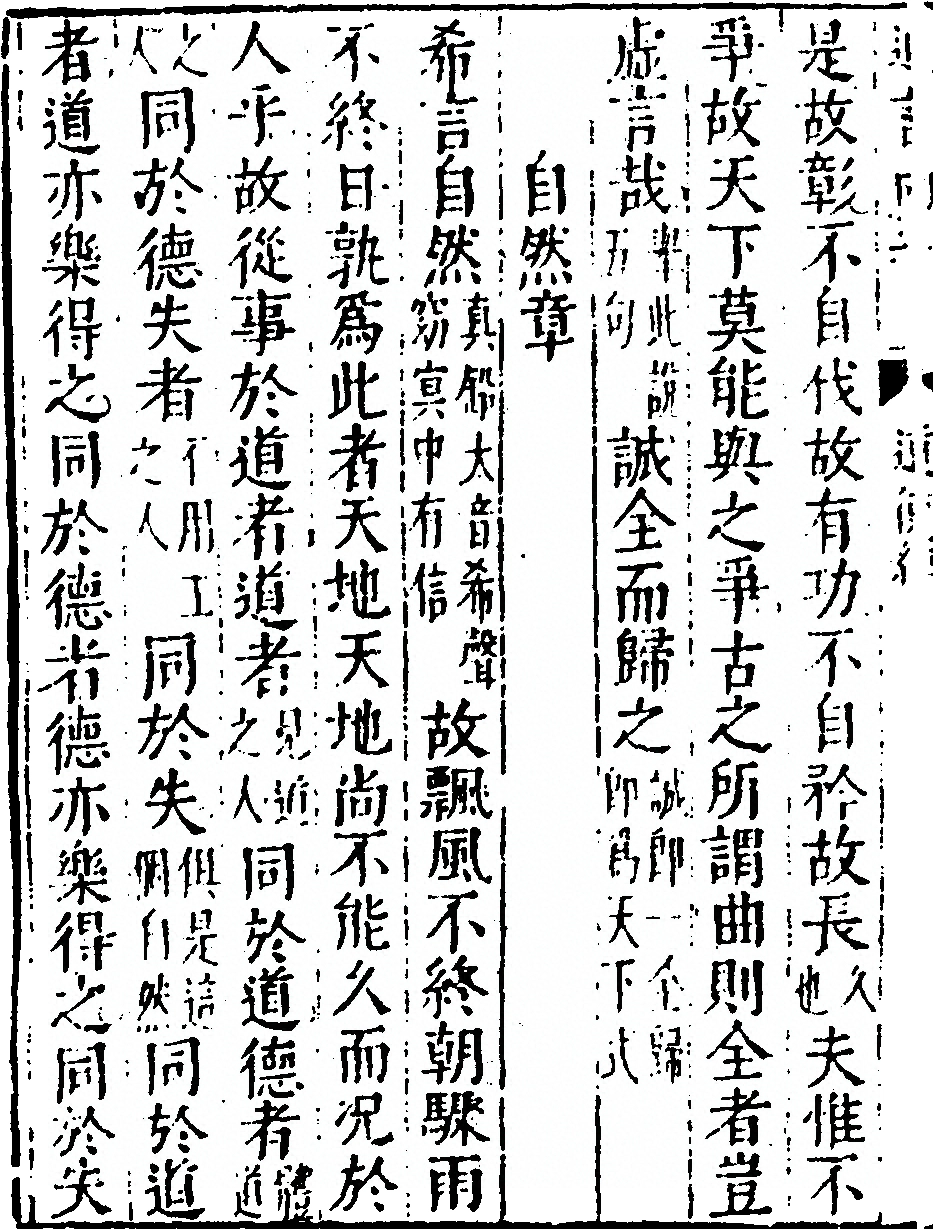 是故彰不自伐故有功不自矜故長久也夫惟不
爭故天下莫能與之爭古之所謂曲則全者豈
虛言哉舉此說五句誠全而歸之誠即一全歸即爲天下式
自然章
希言自然真鉛太音希聲窈冥中有信故飄風不終朝驟雨
不終日孰爲此者天地天地尚不能久而況於
人乎故從事於道者道者見之人同於道德者體道
之人同於德失者不用工之人同於失俱是這個自然同於道
者道亦樂得之同於德者德亦樂得之同於失